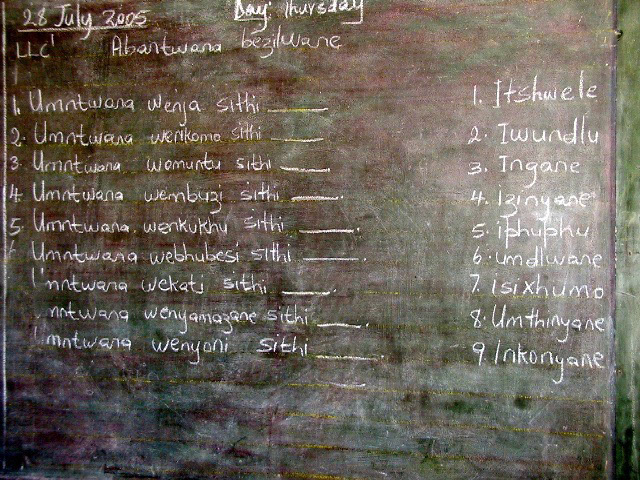 28 July 2005 Day: Thursday
LLC Abantwana bezilwane
1. Umntwana wenja sithi ____ 1. Itshwele
2. Umntwana wenkomo sithi ____ 2. Iwundlu
3. Umntwana womuntu sithi ____ 3. Ingane
4. Umntwana wembuzi sithi ____. 4. izinyane
5. Umntwana wenkukhu sithi ____. 5. iphuphu
Umntwana webhubesi sithi ____. 6. umdlwane
mntwana wekati sithi ____. 7. isixhumo
mntwana wenyamazane sithi ____. 8. Umthinyane
mntwana wenyoni sithi ____. 9. Inkonyane